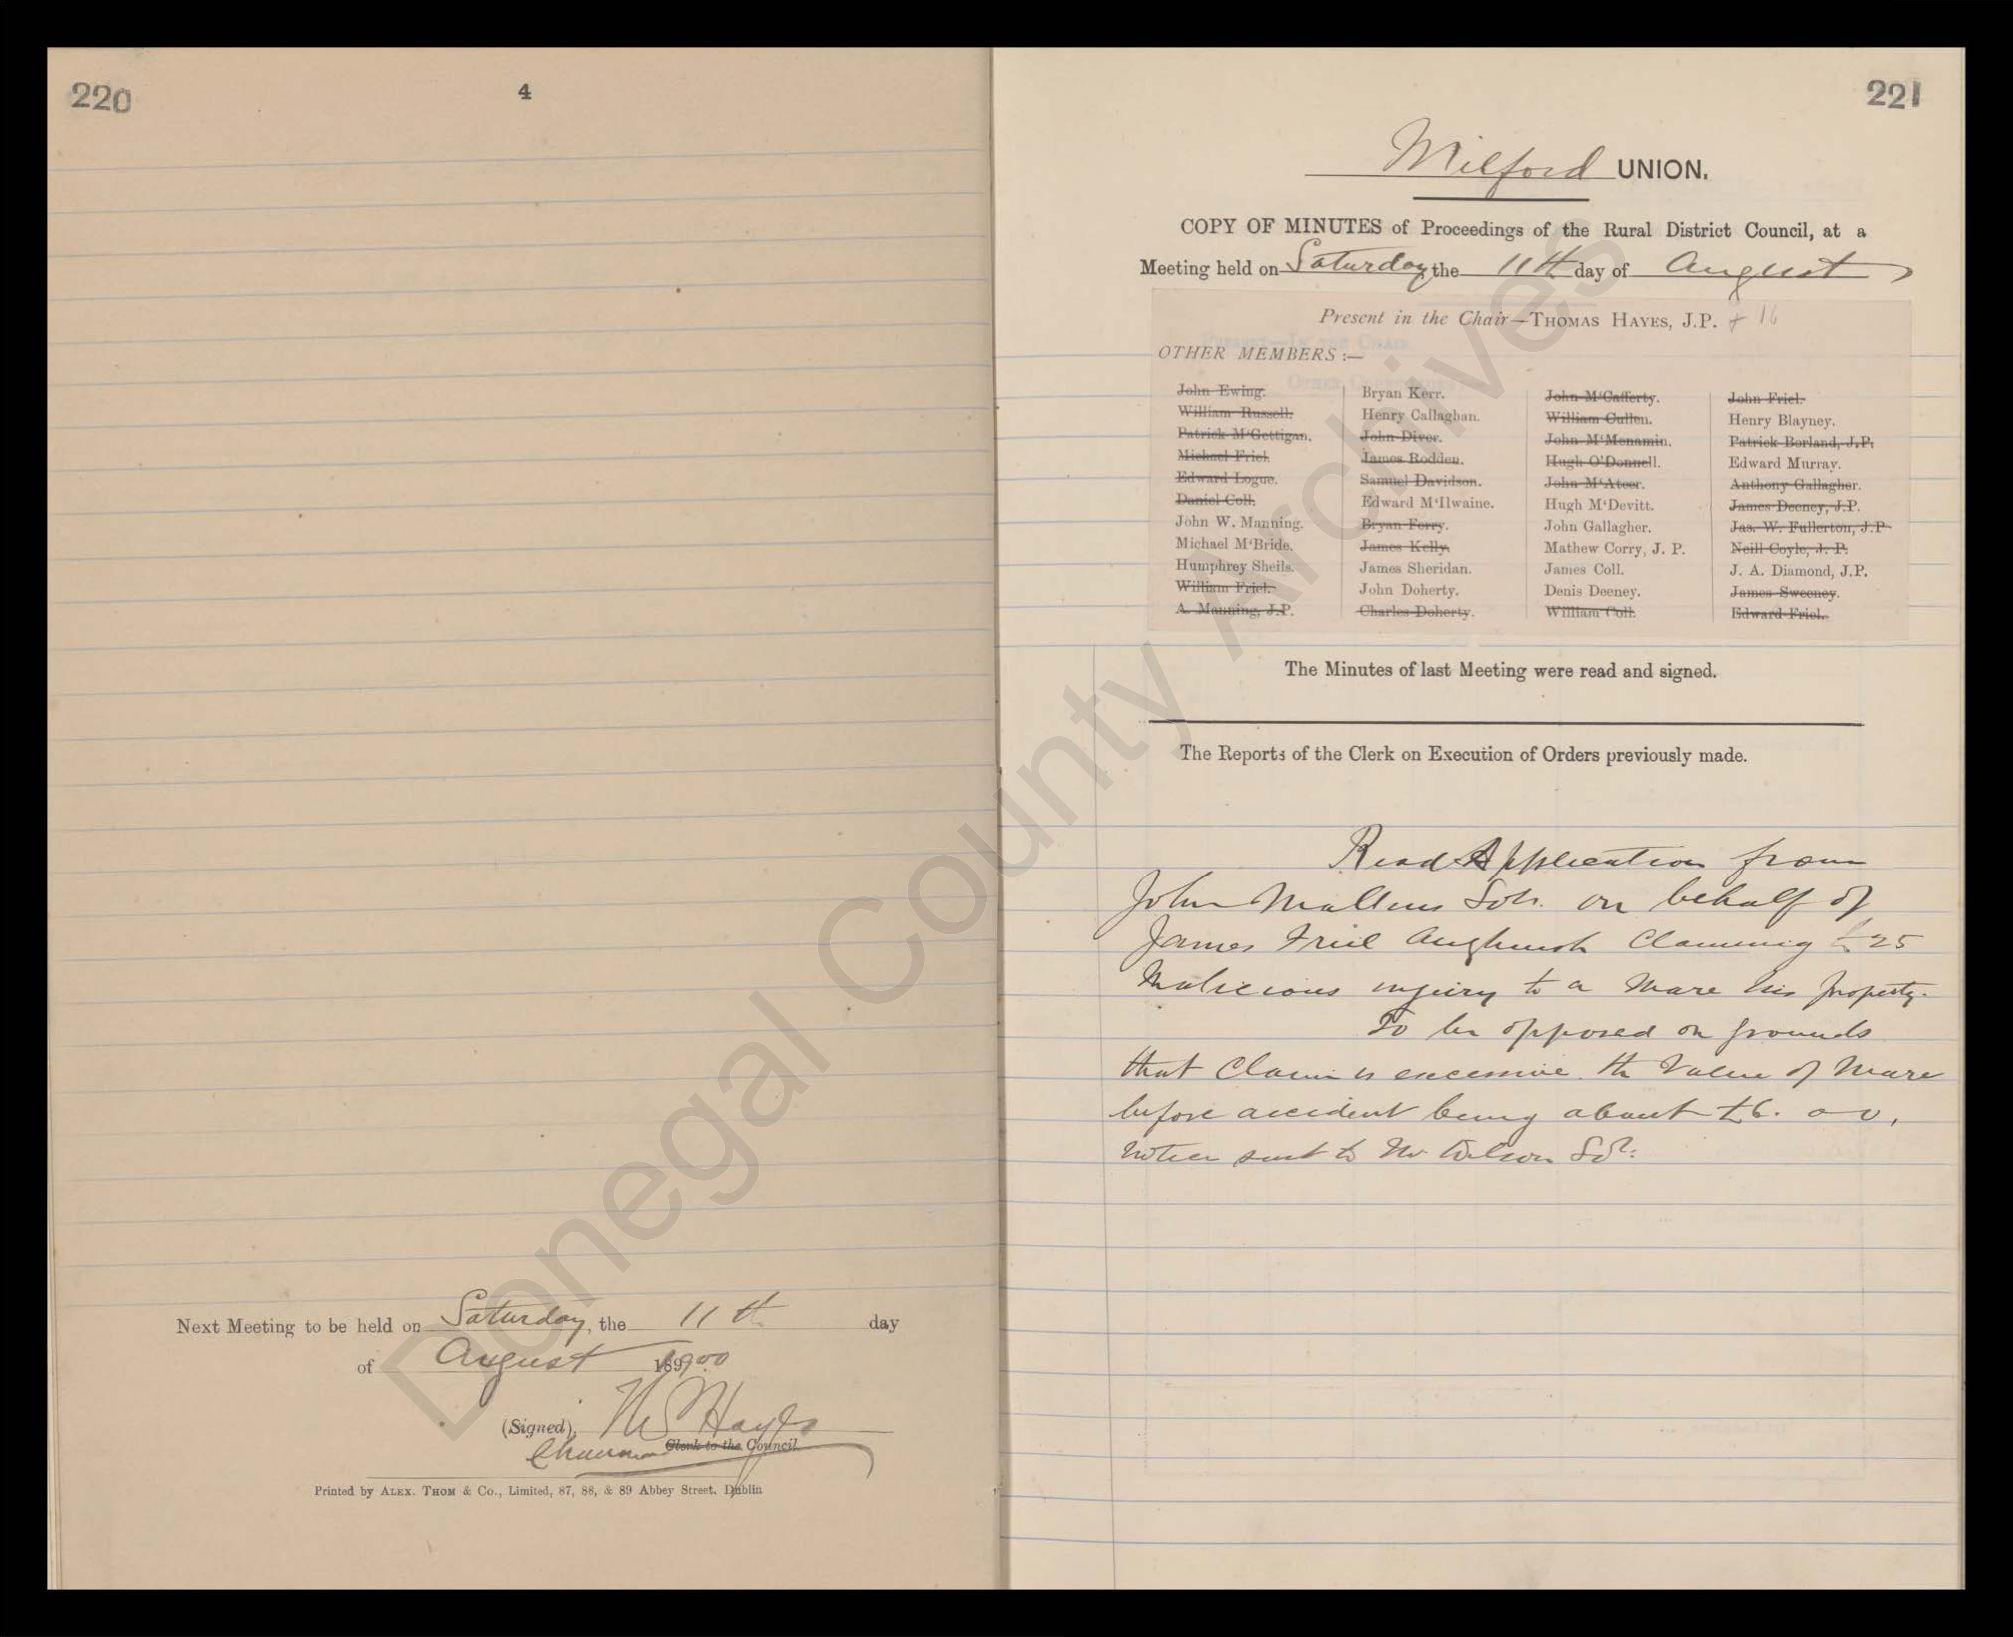 220
4
Next Meeting to be held on Saturday, the 11th day
of August 1900
(Signed), Hayes
Chairman Clerk to the Council.
Printed by ALEX. THOM & Co., Limited, 87, 88, & 89 Abbey Street, Dublin
221
Milford UNION.
COPY OF MINUTES of Proceedings of the Rural District Council, at a
Meeting held on Saturday the 11th day of August
Present in the Chair—THOMAS HAYES, J.P. + 16
OTHER MEMBERS :—
John Ewing.
William Russell.
Patrick M‘Gettigan.
Michael Friel.
Edward Logue.
Daniel Coll.
John W. Manning.
Michael M‘Bride.
Humphrey Sheils.
William Friel.
A. Manning, J.P.
Bryan Kerr.
Henry Callaghan.
John Diver.
James Rodden.
Samuel Davidson.
Edward M‘Ilwaine.
Bryan Ferry.
James Kelly.
James Sheridan.
John Doherty.
Charles Doherty.
John M‘Cafferty.
William Cullen.
John M‘Menamin.
Hugh O‘Donnell.
John M‘Ateer.
Hugh M‘Devitt.
John Gallagher.
Mathew Corry, J. P.
James Coll.
Denis Deeney.
William Coll.
John Friel.
Henry Blayney.
Patrick Borland, J.P.
Edward Murray.
Anthony Gallagher.
James Deeney, J.P.
Jas. W. Fullerton, J.P
Neill Coyle, J. P.
J. A. Diamond, J.P.
James Sweeney.
Edward Friel.
The Minutes of last Meeting were read and signed.
The Reports of the Clerk on Execution of Orders previously made.
Read Application from
John Solr. on behalf of
James Friel Claiming £25
Malicious injury to a Mare his property.
To be opposed on grounds
that Claim is excessive the Value of Mare
before accident being about £6. 0 0,
Notice sent to Mr Wilson Solr:
Donegal County Archives